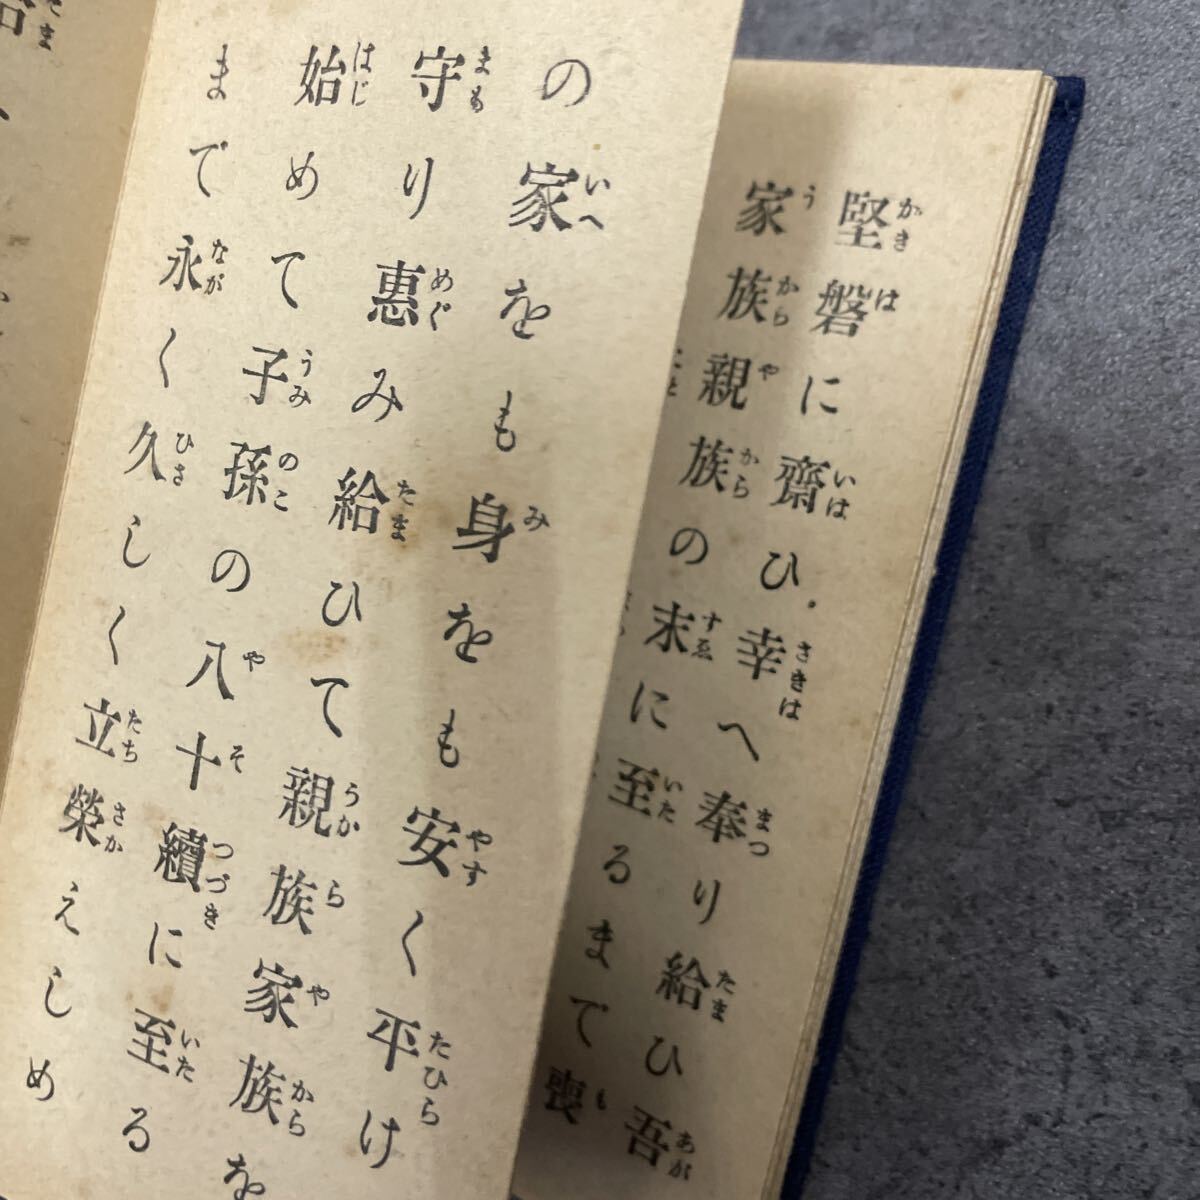 堅磐に齋ひ幸へ奉り給ひ吾
家族親族の末に至るまで喪
の家をも身をも安く平け
守り惠み給ひて親族家族を
始めて子孫の八十續に至る
まで永く久しく立榮えしめ